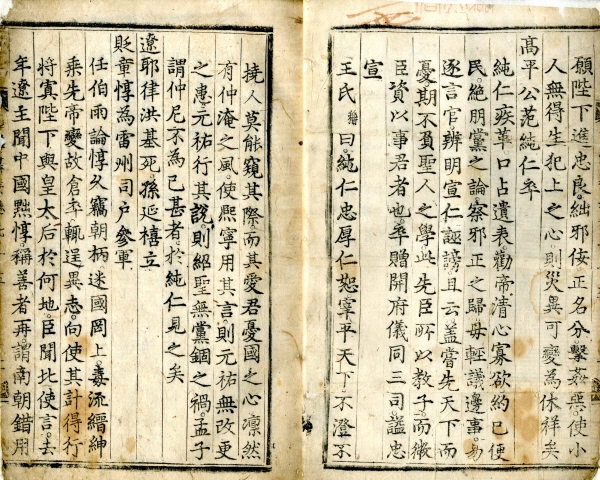 願陛下進忠良。絀邪佞。正名分。擊姦惡。使小
人無得生犯上之心。則災異可變為休祥矣
高平公范純仁卒
純仁疾革。口占遺表。勸帝清心寡欲。約己便
民。絶朋黨之論。察邪正之歸。毋輕議邊事。易
逐言官。辨明宣仁誣謗。且云盖嘗先天下而
憂。期不負聖人之學。此先臣所以教子。而微
臣資以事君者也。卒贈開府儀同三司。謚忠
宣
王氏曰。純仁忠厚仁恕。宰平天下。不澄不
撓。人莫能窺其際。而其愛君憂國之心。凛然
有仲淹之風。使熙寧用其言。則元祐無改更
之患。元祐行其說。則紹聖無黨錮之禍。孟子
謂仲尼不為已甚者。於純仁見之矣
遼耶律洪基死。孫延禧立
貶章惇為雷州司户參軍
任伯雨論惇久竊朝柄。迷國罔上。毒流縉紳
乘先帝變故倉卒。輒逞異志。向使其計得行
將寘陛下與皇太后於何地。臣聞北使言。去
年遼主聞中國黜惇。稱善者再。謂南朝錯用